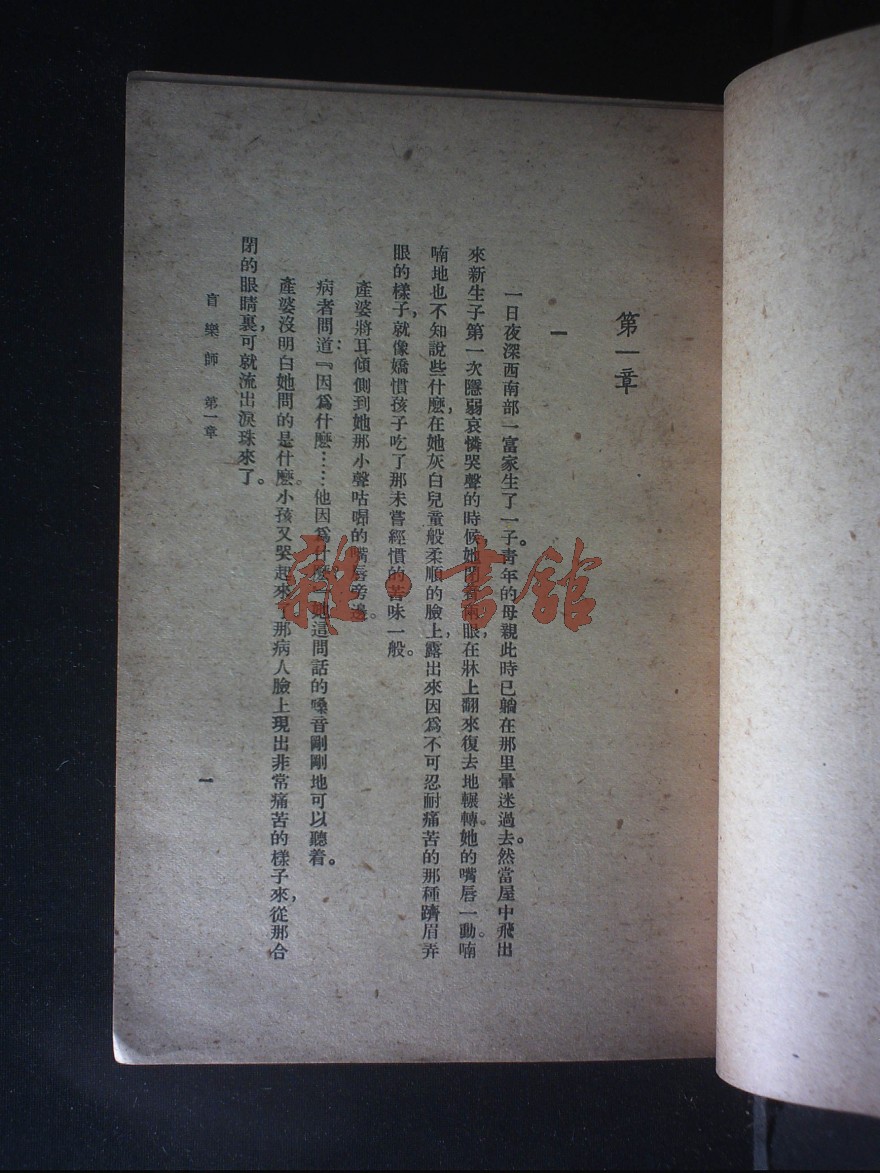 第一章
一
一日夜深西南部一富家生了一子。青年的母親此時已躺在那里暈迷過去。然當屋中飛出
來新生子第一次隱弱哀憐哭聲的時候，她閉着兩眼，在牀上翻來復去地輾轉。她的嘴唇一動。喃
喃地也不知說些什麽，在她灰白兒童般柔順的臉上，露出來因爲不可忍耐痛苦的那種躋眉弄
眼的樣子，就像嬌慣孩子吃了那未嘗經慣的苦味一般。
產婆將耳傾側到她那小聲咕唧的嘴唇旁邊。
病者問道：『因爲什麽……他因爲什麽。她這問話的嗓音剛剛地可以聽着。
產婆沒明白她問的是什麽。小孩又哭起來了。那病人臉上現出非常痛苦的樣子來，從那合
閉的眼睛裏，可就流出淚珠來了。
盲樂師 第一章
一
雜·書館